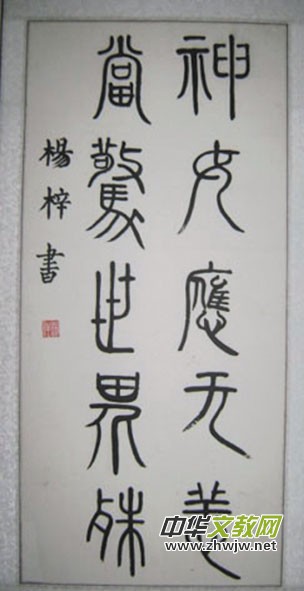 神女應无恙
當驚世界殊
楊梓書
中华文教网
www.zhwjw.net